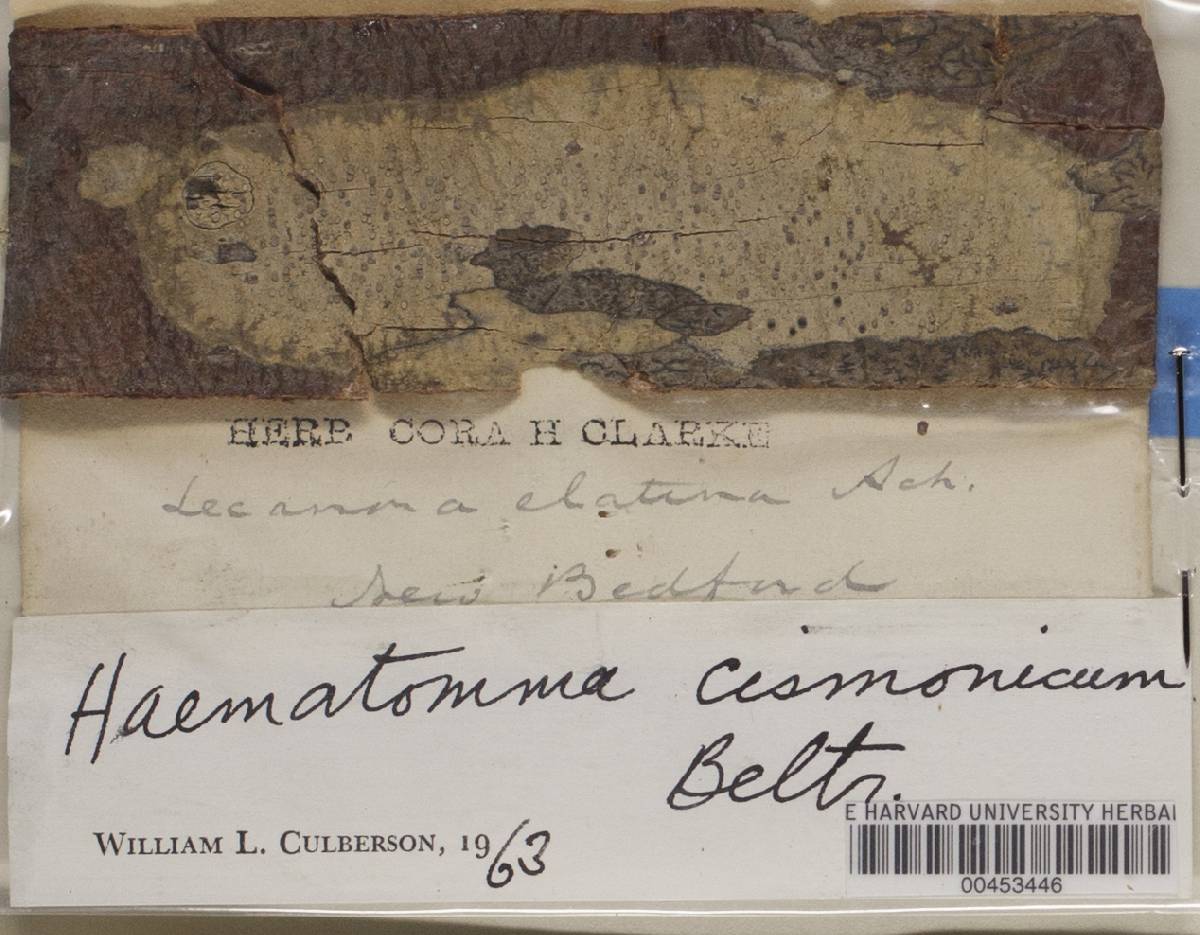 HERB CORA H CLARKE
Lecanora elatina Ach.
New Bedford
Haematomma cismonicum
Beltr.
WILLIAM L. CULBERSON, 1963
E HARVARD UNIVERSITY HERBAI
00453446